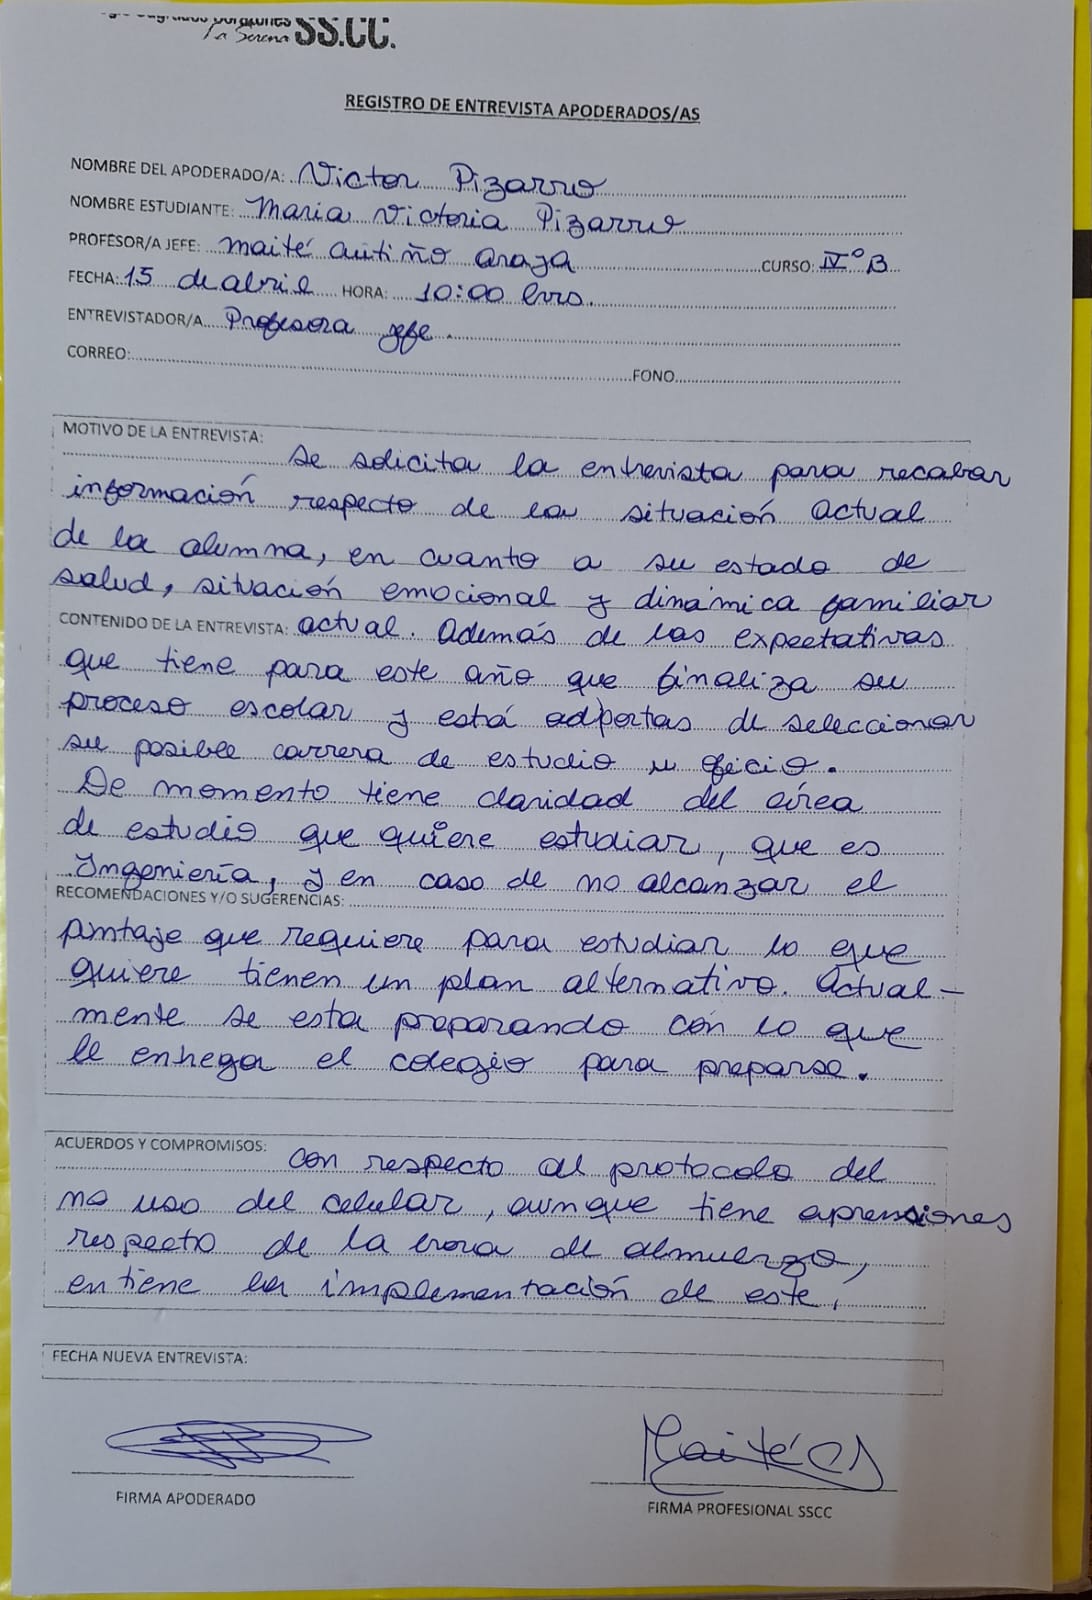 Sagrados Corazones
La Serena SS.CC.
REGISTRO DE ENTREVISTA APODERADOS/AS
NOMBRE DEL APODERADO/A: Victor Pizarro
NOMBRE ESTUDIANTE: Maria Victoria Pizarro
PROFESOR/A JEFE: Maité Autiño Araya CURSO: IV° B
FECHA: 15 de abril HORA: 10:00 hrs.
ENTREVISTADOR/A Profesora jefe.
CORREO: FONO
MOTIVO DE LA ENTREVISTA:
Se solicita la entrevista para recabar
información respecto de la situación actual
de la alumna, en cuanto a su estado de
salud, situación emocional y dinámica familiar
CONTENIDO DE LA ENTREVISTA: actual. Además de las expectativas
que tiene para este año que finaliza su
proceso escolar y está adportas de seleccionar
su posible carrera de estudio u oficio.
De momento tiene claridad del área
de estudio que quiere estudiar, que es
Ingeniería, y en caso de no alcanzar el
RECOMENDACIONES Y/O SUGERENCIAS:
puntaje que requiere para estudiar lo que
quiere tienen un plan alternativo. Actual-
mente se esta preparando con lo que
le entrega el colegio para preparse.
ACUERDOS Y COMPROMISOS:
Con respecto al protocolo del
no uso del celular, aunque tiene aprensiones
respecto de la hora de almuerzo,
entiene la implementación de este.
FECHA NUEVA ENTREVISTA:
Maité
FIRMA APODERADO
FIRMA PROFESIONAL SSCC